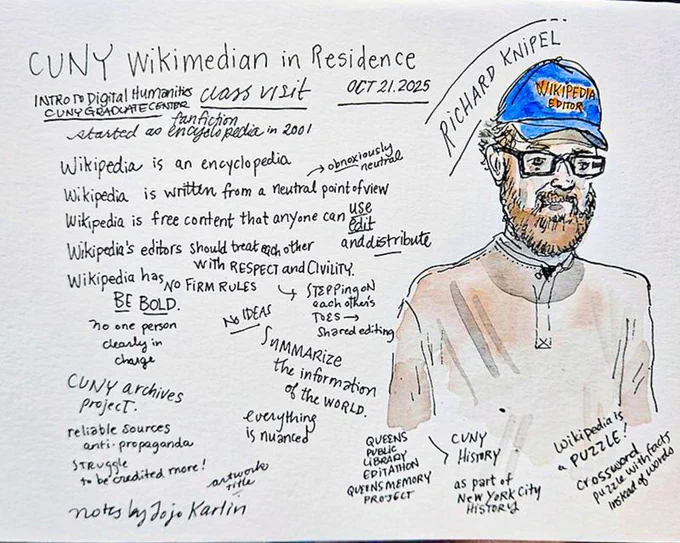 CUNY Wikimedian in Residence
INTRO TO Digital Humanities class visit OCT 21. 2025
CUNY GRADUATE CENTER
fanfiction
started as encyclopedia in 2001
Wikipedia is an encyclopedia
→ obnoxiously neutral
Wikipedia is written from a neutral point of view
Wikipedia is free content that anyone can use
edit
and distribute
Wikipedia's editors should treat each other
with RESPECT and CIVILITY.
Wikipedia has NO FIRM RULES
BE BOLD.
→ STEPPING ON
each other's
TOES →
Shared editing
no one person
clearly in
charge
No IDEAS
SUMMARIZE
the information
of the WORLD.
CUNY archives
project.
reliable sources
anti-propaganda
everything
is nuanced
STRUGGLE
to be credited more!
artwork
title
notes by Jojo Karlin
QUEENS
PUBLIC
LIBRARY
EDITATHON
QUEENS MEMORY
PROJECT
CUNY
HISTORY
as part of
New York City
HISTORY
Wikipedia is
a PUZZLE!
crossword
puzzle with facts
instead of words
RICHARD KNIPEL
WIKIPEDIA
EDITOR